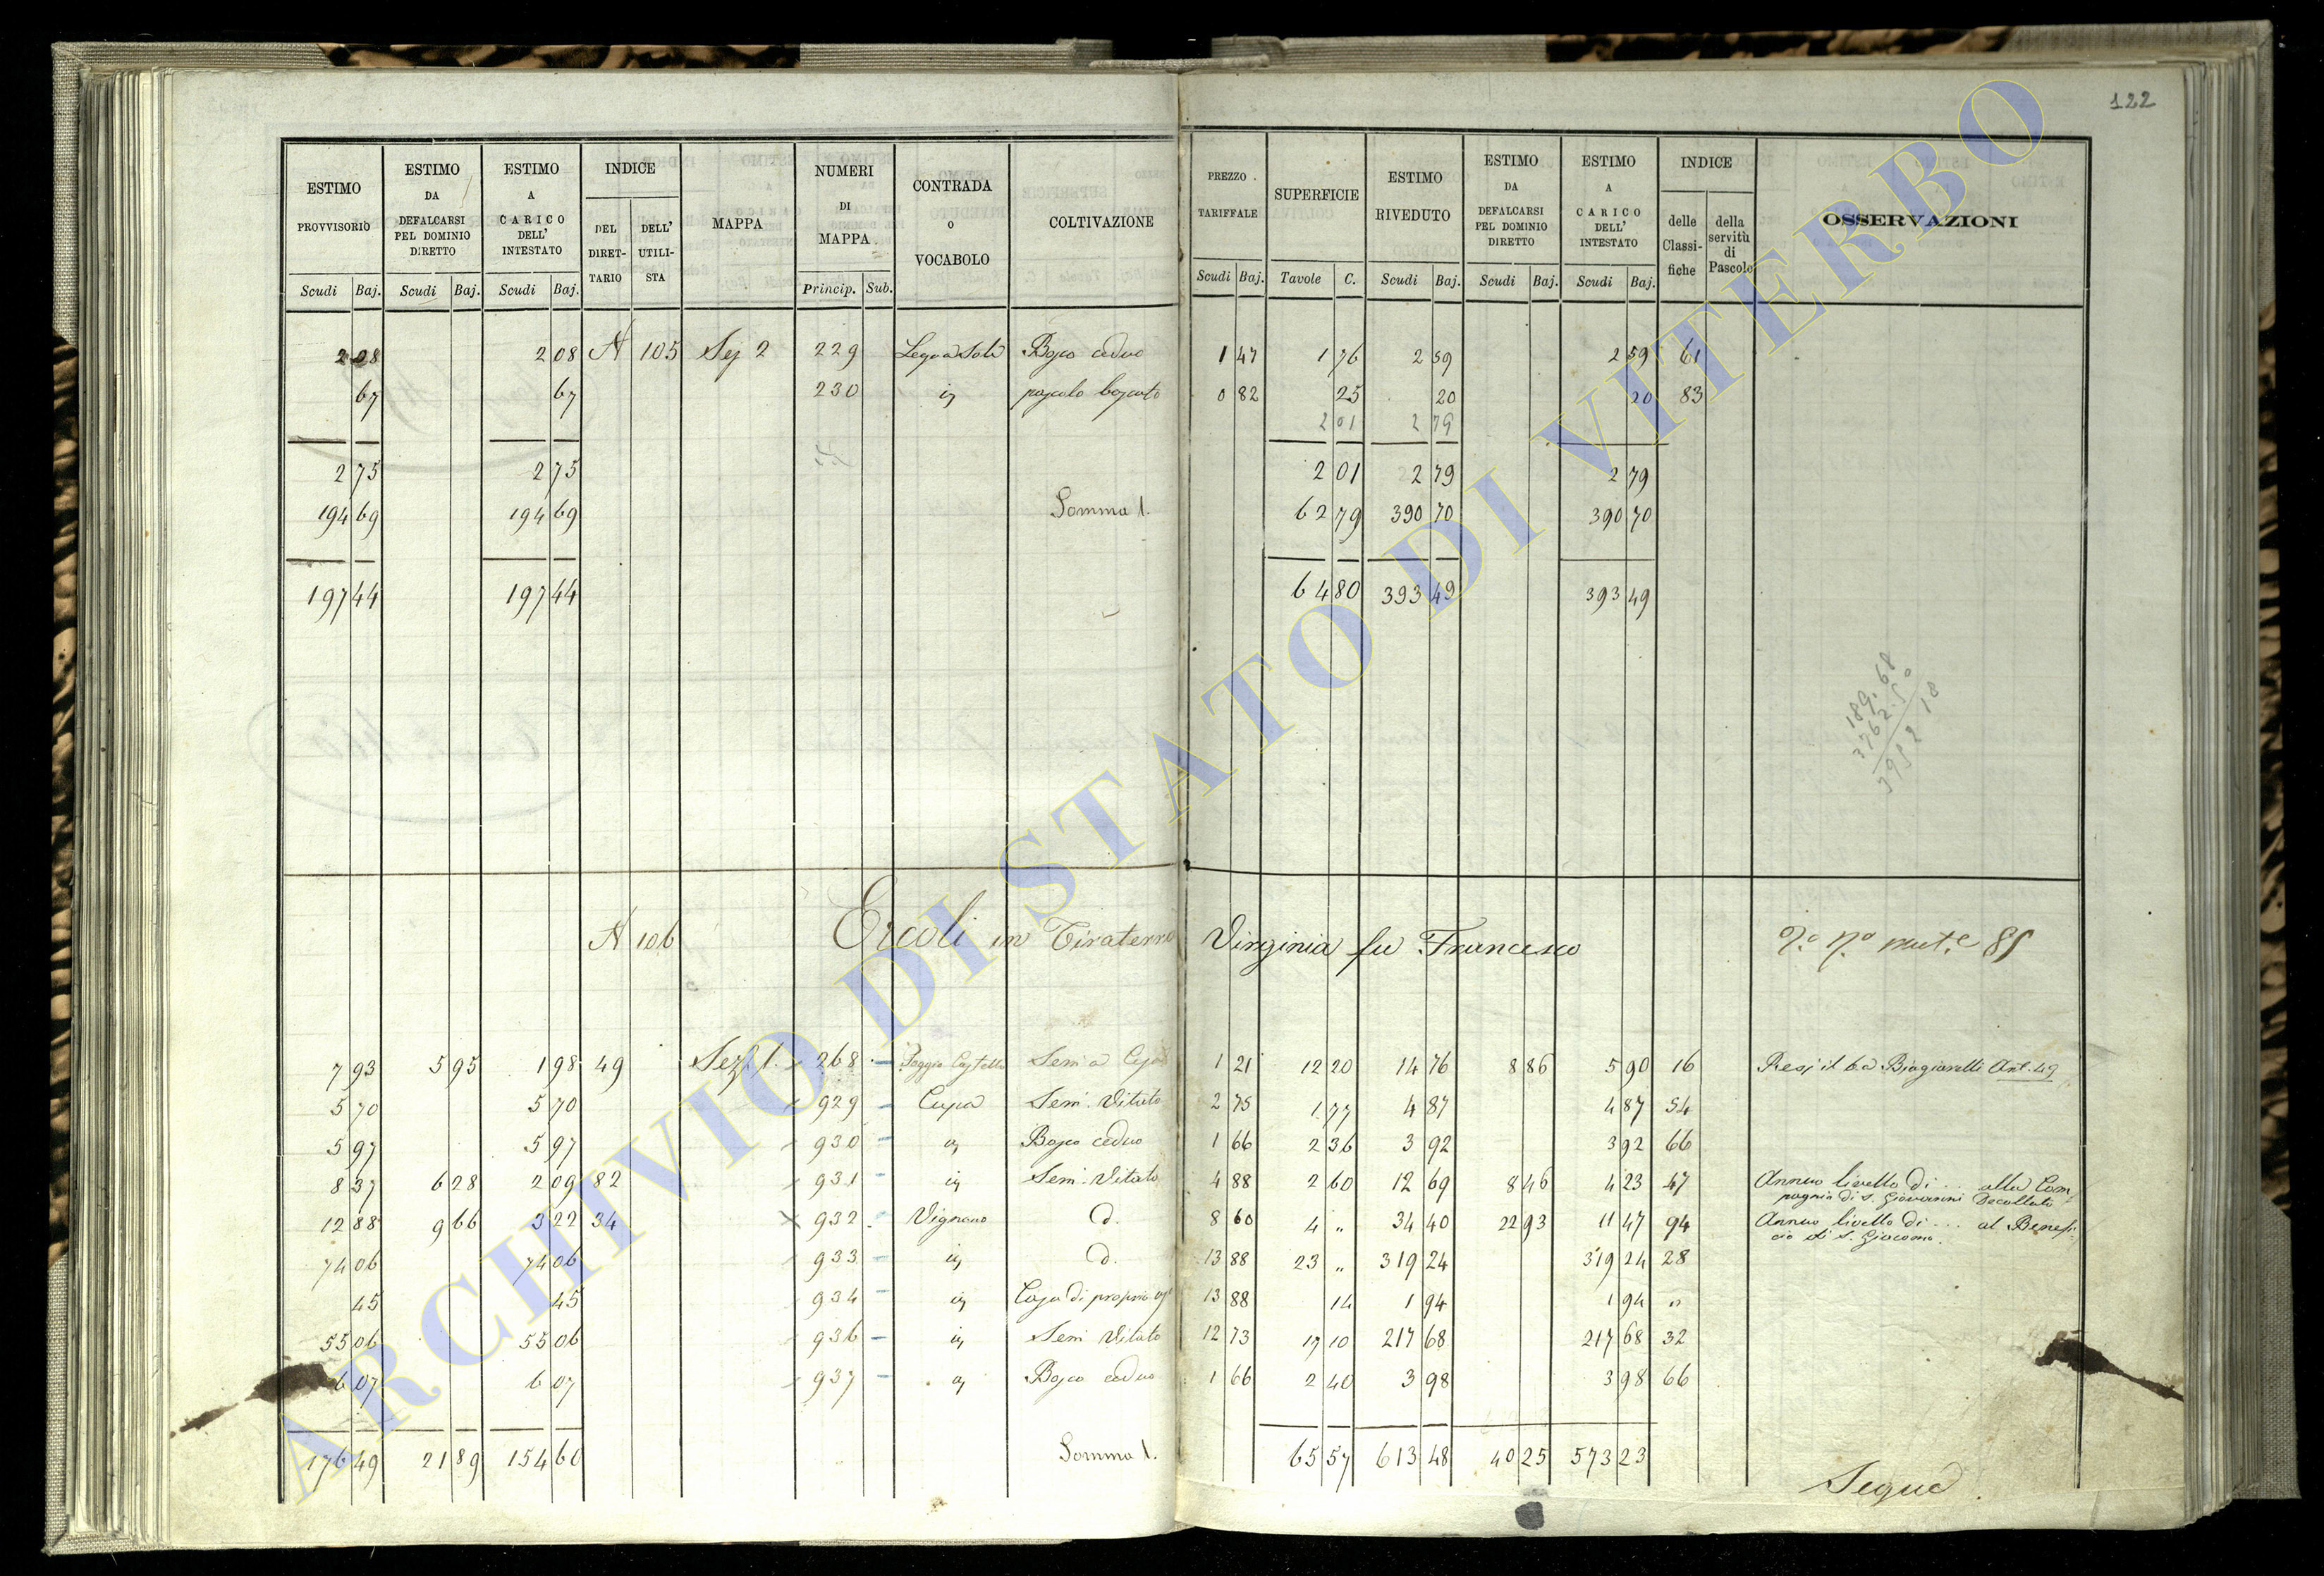 122
ESTIMO PROVVISORIO Scudi Baj. ESTIMO DA DEFALCARSI PEL DOMINIO DIRETTO Scudi Baj. ESTIMO A CARICO DELL' INTESTATO Scudi Baj. INDICE DEL DIRET-TARIO DELL' UTILI-STA MAPPA NUMERI DI MAPPA Princip. Sub. CONTRADA O VOCABOLO COLTIVAZIONE PREZZO TARIFFALE Scudi Baj. SUPERFICIE Tavole C. ESTIMO RIVEDUTO Scudi Baj. ESTIMO DA DEFALCARSI PEL DOMINIO DIRETTO Scudi Baj. ESTIMO A CARICO DELL' INTESTATO Scudi Baj. INDICE delle Classi-fiche della servitù di Pascolo OSSERVAZIONI
2 08 2 08 A 105 Sez 2 229 Bosco ceduo 1 47 1 76 2 59 2 59 61
67 67 230 pascolo boscato 0 82 25 20 20 83
2 01 2 79
2 75 2 75 2 01 2 79 2 79
194 69 194 69 Somma 1. 62 79 390 70 390 70
197 44 197 44 64 80 393 49 393 49
189.68
3762.50
3952 18
A 106 Ercoli in Tiraterra Virginia fu Francesco 85
7 93 5 95 1 98 49 Sez. 1. 268 Poggio Castello 1 21 12 20 14 76 8 86 5 90 16 Biagiarelli Art. 49
5 70 5 70 929 Cupa Sem. Vitato 2 75 1 77 4 87 4 87 54
5 97 5 97 930 Bosco ceduo 1 66 2 36 3 92 3 92 66
8 37 6 28 2 09 82 931 Sem. Vitato 4 88 2 60 12 69 8 46 4 23 47 Annuo livello di ... alla Com
pagnia di S. Giovanni Decollato
12 88 9 66 3 22 34 932 Vignano d. 8 60 4 " 34 40 22 93 11 47 94 Annuo livello di ... al Benefi
cio di S. Giacomo.
74 06 74 06 933 d. 13 88 23 " 319 24 319 24 28
45 45 934 Casa di proprio 13 88 14 1 94 1 94 "
55 06 55 06 936 Sem Vitato 12 73 17 10 217 68 217 68 32
6 07 6 07 937 Bosco ceduo 1 66 2 40 3 98 3 98 66
176 49 21 89 154 60 Somma 1. 65 57 613 48 40 25 573 23
Segue
ARCHIVIO DI STATO DI VITERBO